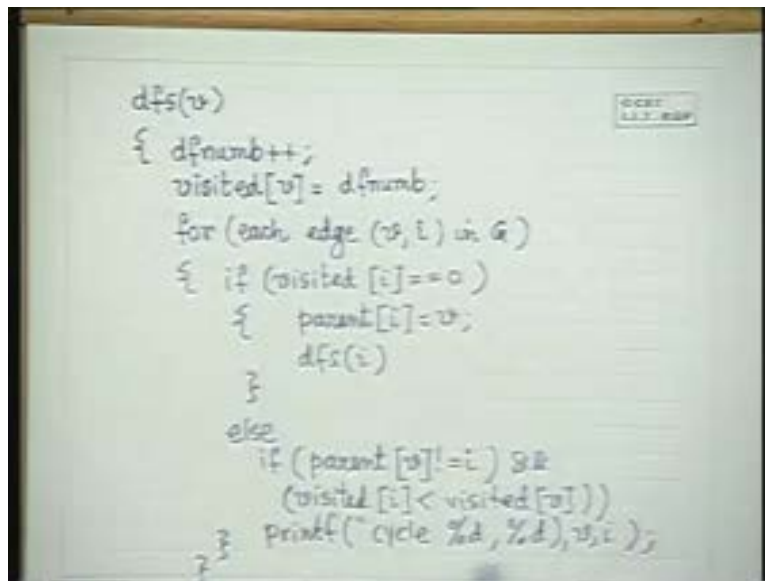 dfs(v)
{ dfnumb++;
visited[v] = dfnumb;
for (each edge (v, i) in G)
{ if (visited [i]==0)
{ parent[i]=v;
dfs(i)
}
else
if (parent [v]!=i) &&
(visited [i] < visited[v]))
} printf("cycle %d, %d), v,i );
}